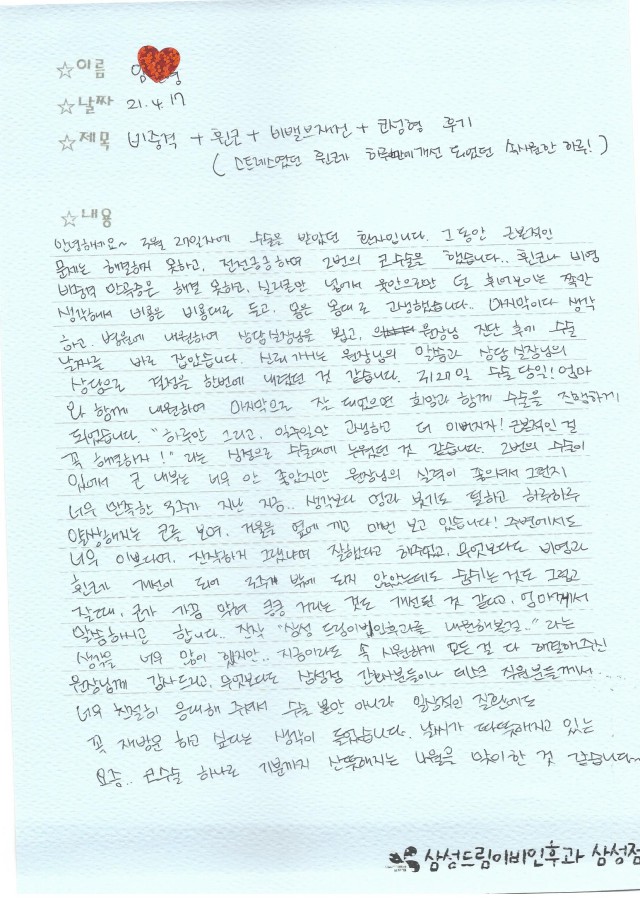 ☆이름 임 영
☆날짜 21.4.17
☆제목 비중격 + 휜코 + 비밸브재건 + 코성형 후기
( 스트레스였던 휜코가 하루만에 개선 되었던 속시원한 하루! )
☆내용
안녕하세요~ 3월 27일자에 수술을 받았던 환자입니다. 그동안 근본적인
문제는 해결하지 못하고, 전전긍긍하며 2번의 코수술을 했습니다.. 휜코나 비염
비중격 만곡증은 해결 못하고, 실리콘만 넣어서 육안으로만 덜 휘어보이는 쪽만
생각해서 비용은 비용대로 두고, 몸은 몸대로 고생했습니다.. 마지막이다 생각
하고 병원에 내원하여 상담실장님을 뵙고, 원장님 진단 후에 수술
날짜를 바로 잡았습니다. 신뢰가 가는 원장님의 말씀과 상담 실장님의
상담으로 결정을 한번에 내렸던 것 같습니다. 3월 27일 수술 당일! 엄마
와 함께 내원하여 마지막으로 잘 되었으면 희망과 함께 수술을 진행하게
되었습니다. "하루만 그리고, 일주일만 고생하고 더 이뻐지자! 근본적인 걸
꼭 해결하자!" 라는 심정으로 수술대에 누웠던 것 같습니다. 2번의 수술이
있어서 코 내부는 너무 안 좋았지만 원장님의 실력이 좋으셔서 그런지
너무 만족한 3주가 지난 지금.. 생각보다 멍과 붓기도 덜하고 하루하루
말랑해지는 코를 보며, 거울을 옆에 끼고 매번 보고 있습니다! 주변에서도
너무 이쁘다며, 진작하지 그랬냐며 잘했다고 해주셨고, 무엇보다도 비염과
휜코가 개선이 되어 3주 밖에 되지 않았는데도 숨쉬는 것도 그렇고
잘때, 코가 가끔 막혀 킁킁 거리는 것도 개선된 것 같다고, 엄마께서
말씀하시곤 합니다.. 진작 "삼성드림이비인후과를 내원해볼걸.." 라는
생각을 너무 많이 했지만.. 지금이라도 속 시원하게 모든 걸 다 해결해주신
원장님께 감사드리고, 무엇보다도 삼성점 간호사분들이나 데스크 직원분들께서
너무 친절히 응대해 주셔서 수술 뿐만 아니라 일상적인 질환에도
꼭 재방문 하고 싶다는 생각이 들었습니다. 날씨가 따뜻해지고 있는
요즘.. 코수술 하나로 기분까지 산뜻해지는 나날을 맞이한 것 같습니다~
삼성드림이비인후과 삼성점